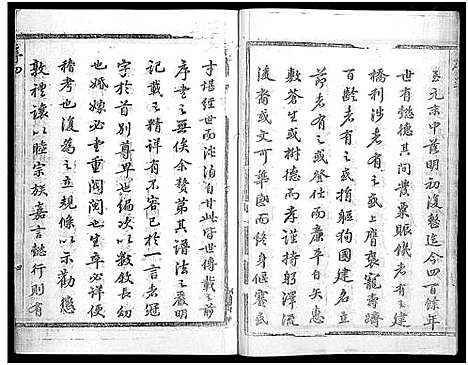 至元末中落明初復整迄今四百餘年
世有懿德其間貲粟賑餘者有之建
橋利涉者有之上膺褒寵壽躋
百齡者有之或執狥國建名立
節者有之或登仕而廉平自矢惠
敷蒼生或樹德而孝謹持躬澤流
後裔或文可華國而終身偃蹇或
才堪經世而泌泊自甘此皆世傳載之前
序者之無俟余贅第其譜法之嚴明
記載之精詳有不容已於一言者冠
字於首別尊卑世編次以敦敘長幼
也婚嫁必書重閥閱也生卒必詳便
稽考也後為之立規條以示勸懲
敦禮讓以睦宗族嘉言懿行則有
序四